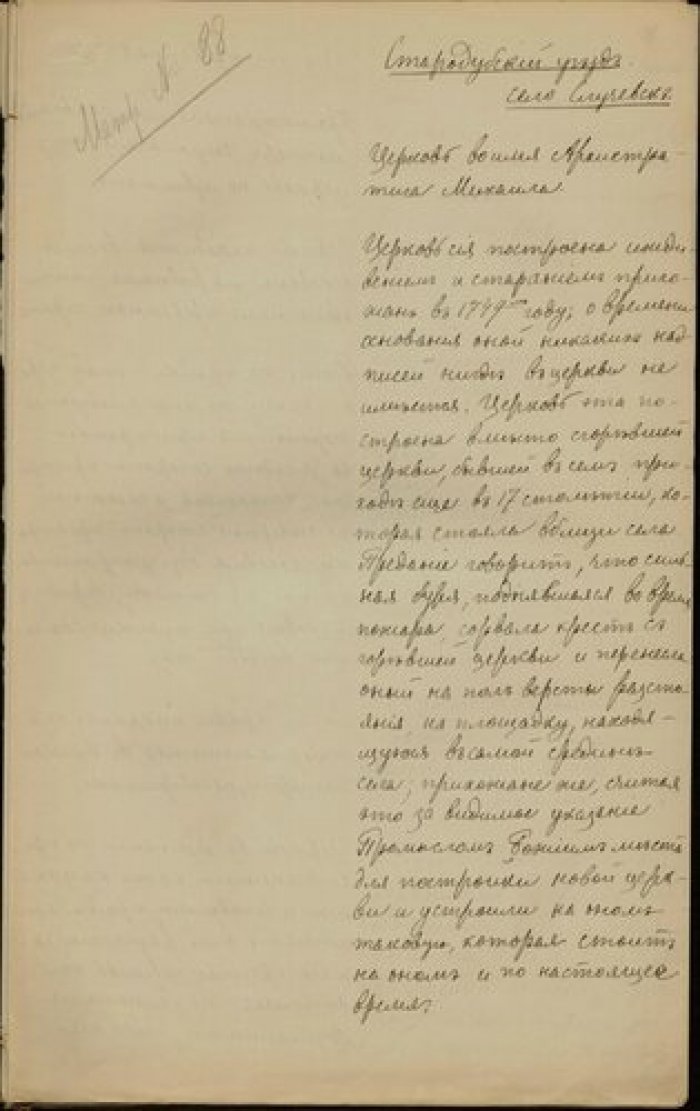 Метр. N. 88
Стародубскій уѣздъ.
село Случевскъ
Церковь во имя Архистра-
тига Михаила
Церковь сія построена иждив-
еніемъ и стараніемъ прихо-
жанъ въ 1749мъ году; о времени
основанія оной никакихъ над-
писей нигдѣ въ церкви не
имѣется. Церковь эта по-
строена вмѣсто сгорѣвшей
церкви, бывшей въ семъ при-
ходѣ еще въ 17 столѣтіи, ко-
торая стояла вблизи села
Преданіе говоритъ, что силь-
ная буря, поднявшаяся во время
пожара, сорвала крестъ съ
горѣвшей церкви и перенесла
оный на полъ версты разсто-
янія, на площадку, находя-
щуюся въ самой срединѣ
села; прихожане же, считая
это за видимое указаніе
Промысломъ Божіимъ мѣста
для постройки новой церк-
ви и устроили на ономъ
таковую, которая стоитъ
на ономъ и по настоящее
время.